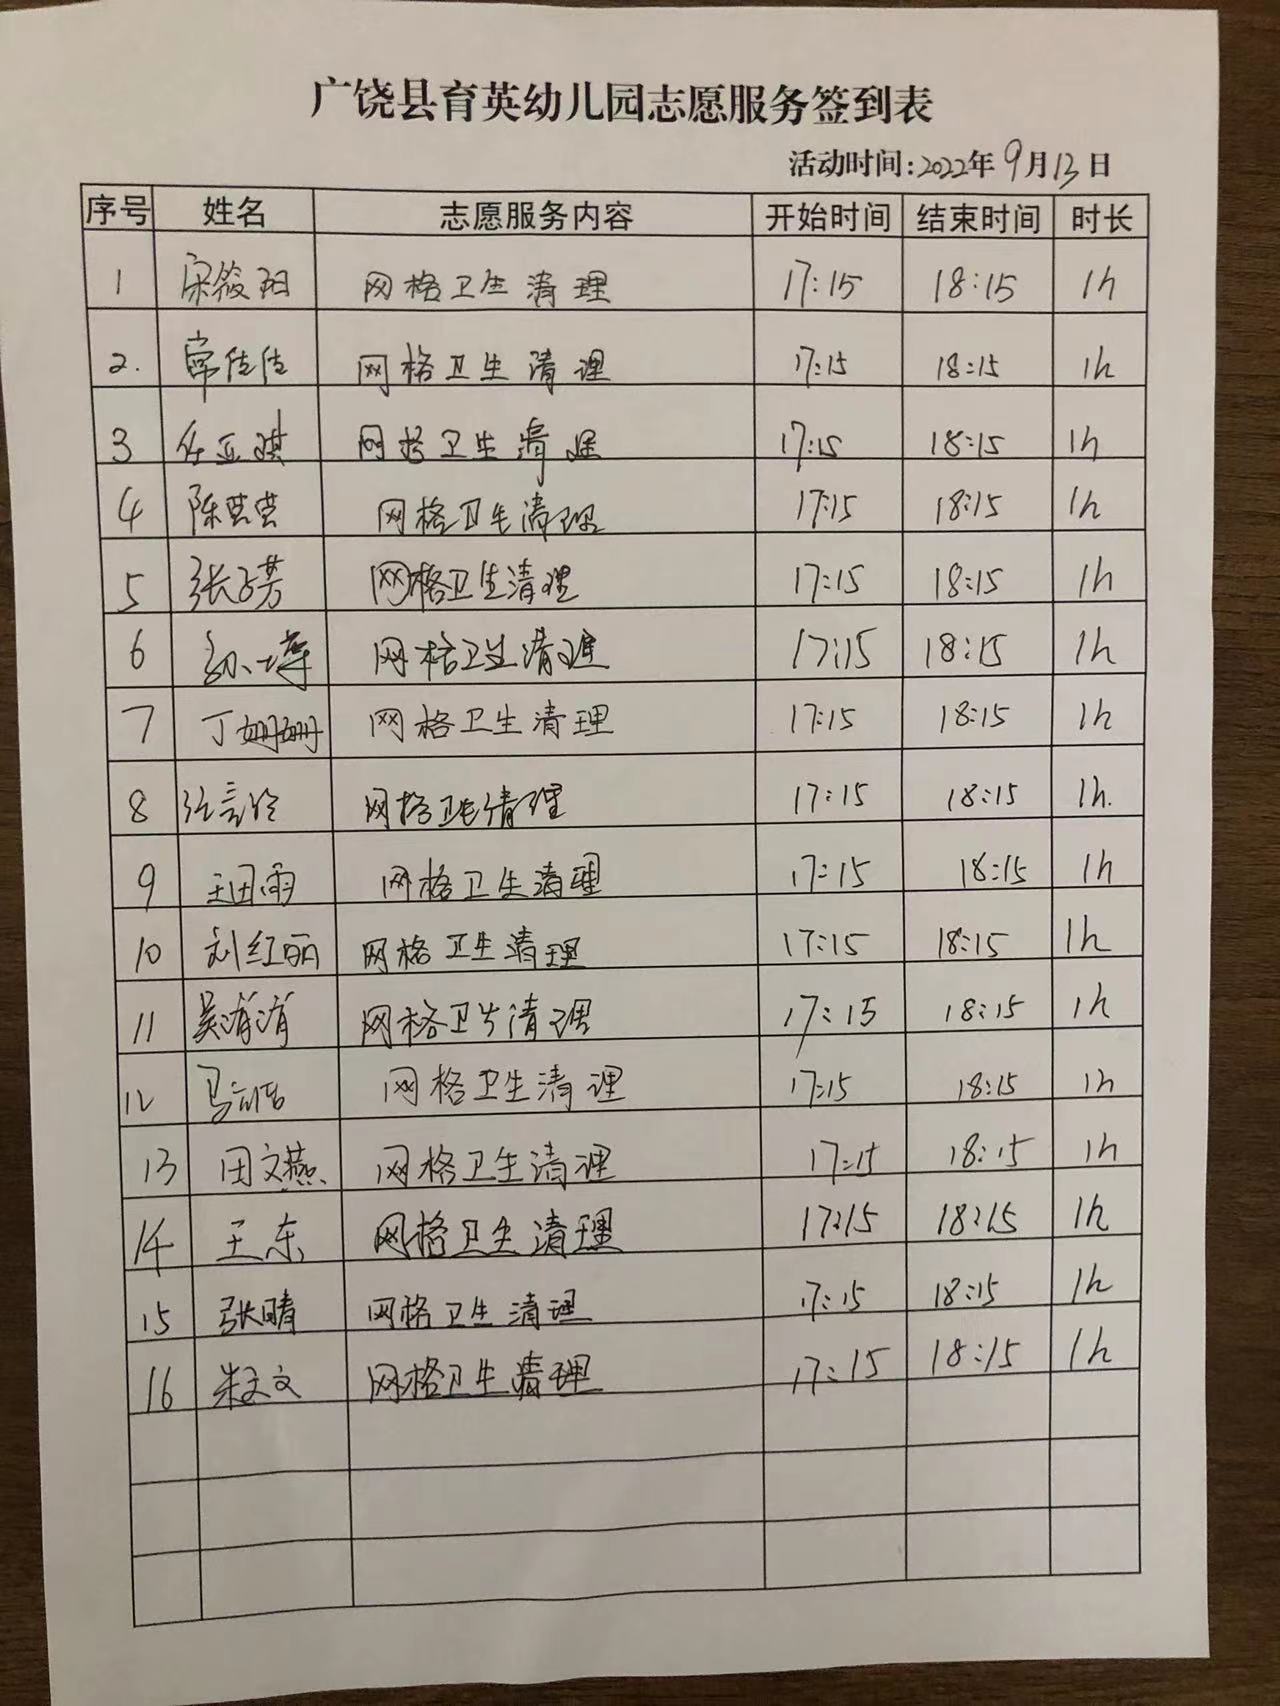 广饶县育英幼儿园志愿服务签到表
活动时间:2022年9月13日
序号 姓名 志愿服务内容 开始时间 结束时间 时长
1 宋筱阳 网格卫生清理 17:15 18:15 1h
2. 常佳佳 网格卫生清理 17:15 18:15 1h
3 任亚琪 网格卫生清理 17:15 18:15 1h
4 陈芸芸 网格卫生清理 17:15 18:15 1h
5 张子芳 网格卫生清理 17:15 18:15 1h
6 网格卫生清理 17:15 18:15 1h
7 丁姗姗 网格卫生清理 17:15 18:15 1h
8 网格卫生清理 17:15 18:15 1h.
9 王田雨 网格卫生清理 17:15 18:15 1h
10 刘红丽 网格卫生清理 17:15 18:15 1h
11 吴清清 网格卫生清理 17:15 18:15 1h
12 网格卫生清理 17:15 18:15 1h
13 田文燕 网格卫生清理 17:15 18:15 1h
14 王东 网格卫生清理 17:15 18:15 1h
15 张晴 网格卫生清理 17:15 18:15 1h
16 朱文文 网格卫生清理 17:15 18:15 1h